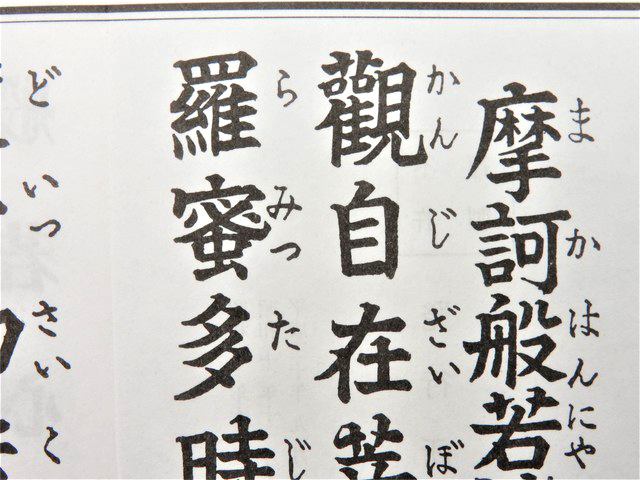 摩訶般若
まかはんにや
觀自在菩
かんじざいぼ
羅蜜多時
らみつたじ
どいつさいこ